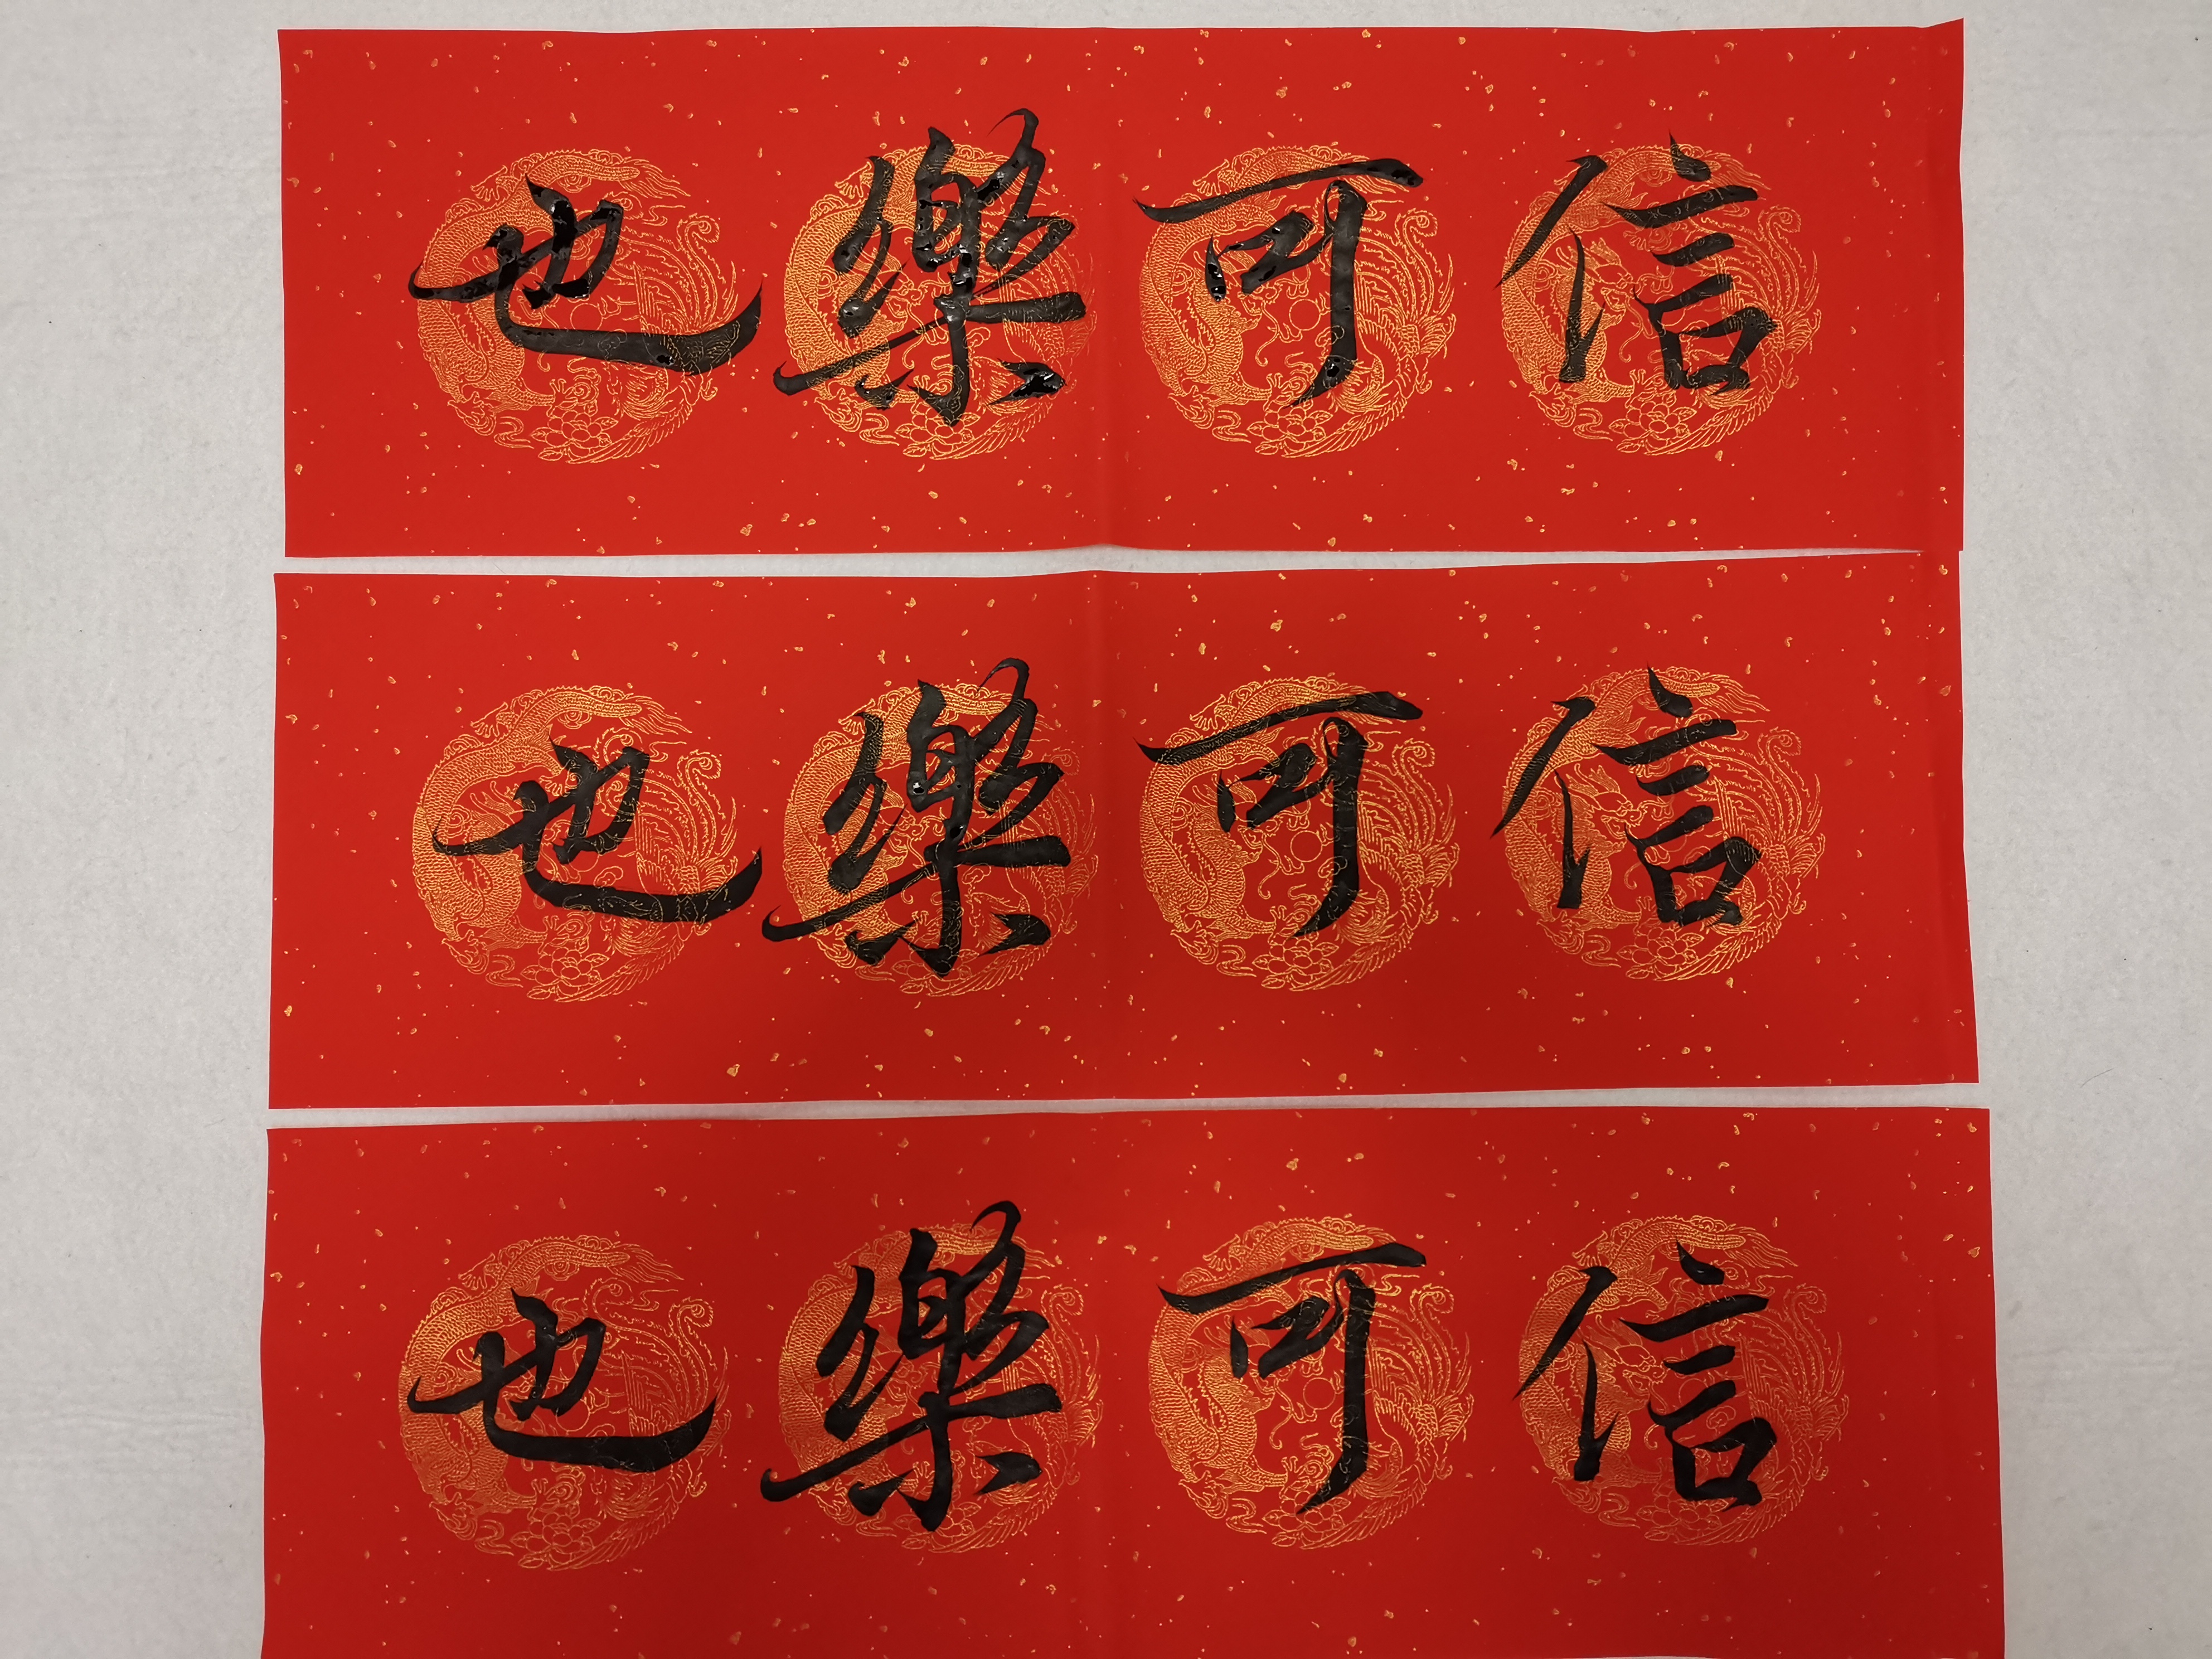 信可樂也
信可樂也
信可樂也